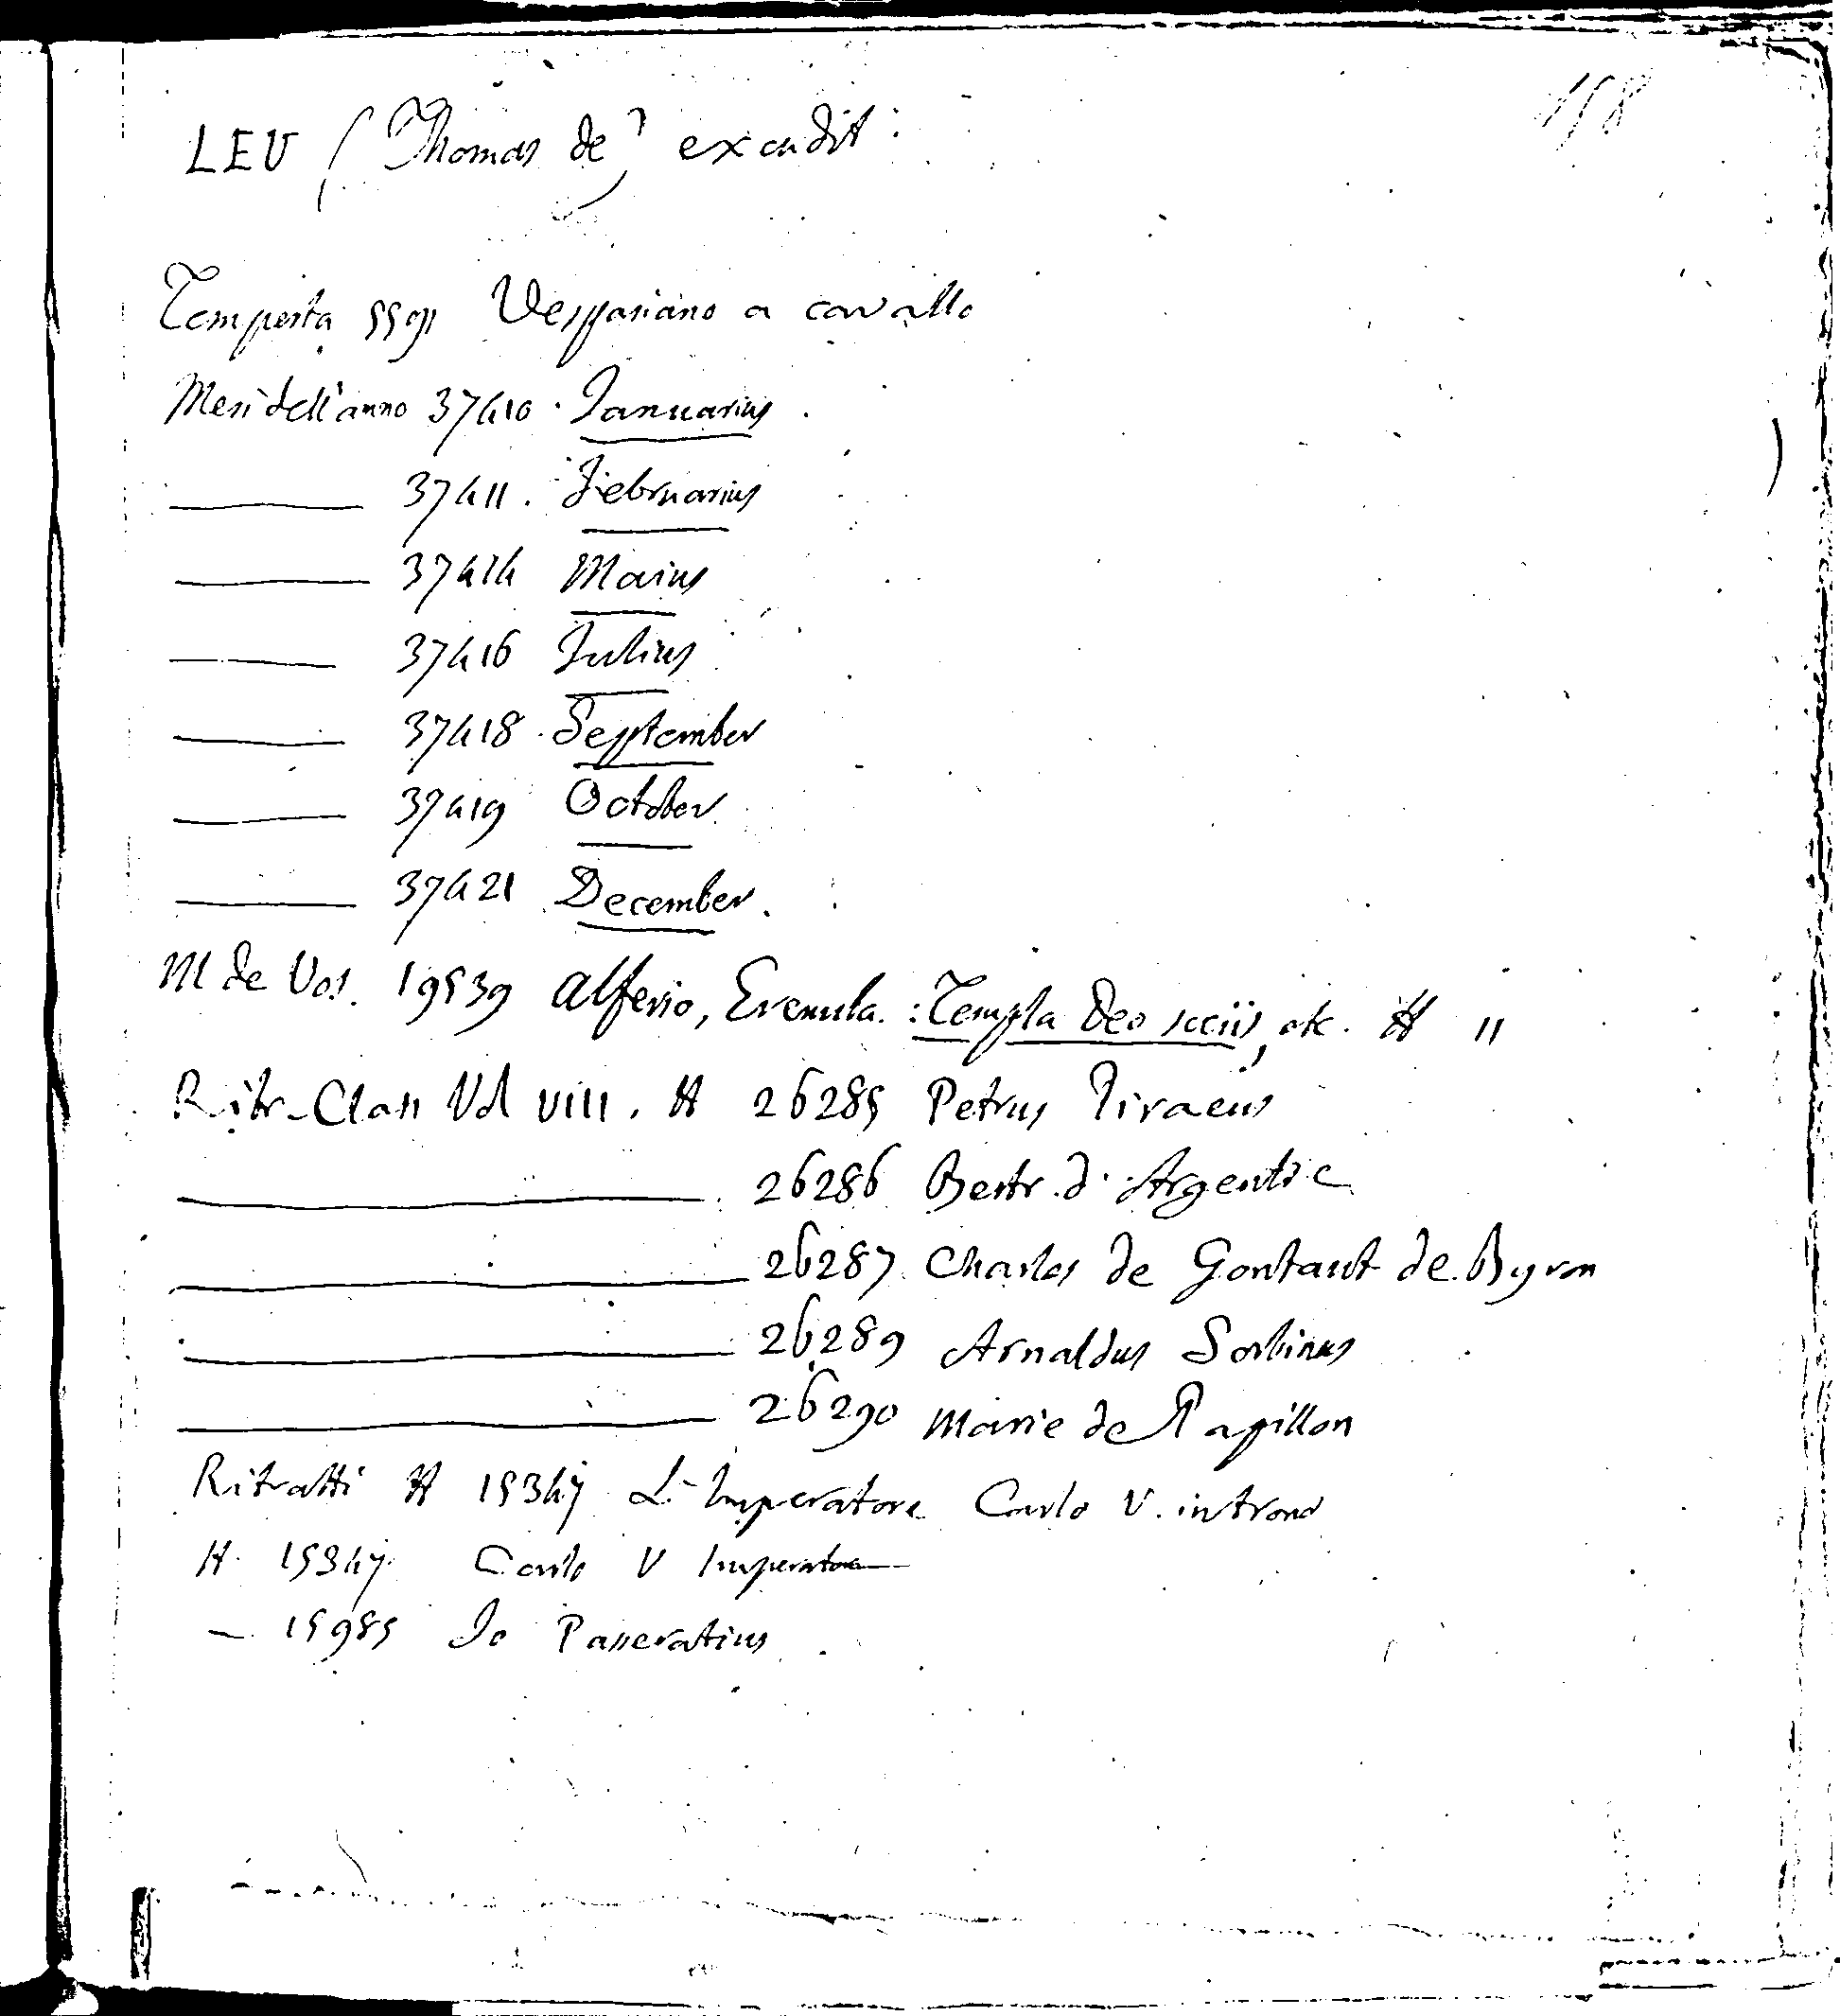 158
LEU (Thomas de) excudit:
Tempesta 5591 Vespasiano a cavallo
Mesi dell'anno 37410. Januarius.
——— 37411. Februarius
——— 37414 Maius
——— 37416 Julius
——— 37418. September
——— 37419 October
——— 37421 December.
M de Vos. 19539 Alferio, Eremita. : Templa Deo sociis, etc. H "
Ritr. Class Vol VIII. H 26285 Petrus Piraeus
——— 26286 Bertr. d'Argentré
——— 26287 Charles de Gontaut de Byron
——— 26289 Arnaldus Sorbinus
——— 26290 Marie de Papillon
Ritratti H 15347 L'Imperatore Carlo V. in trono
H. 15347. Carlo V Imperatore
— 15985 Jo Passeratius